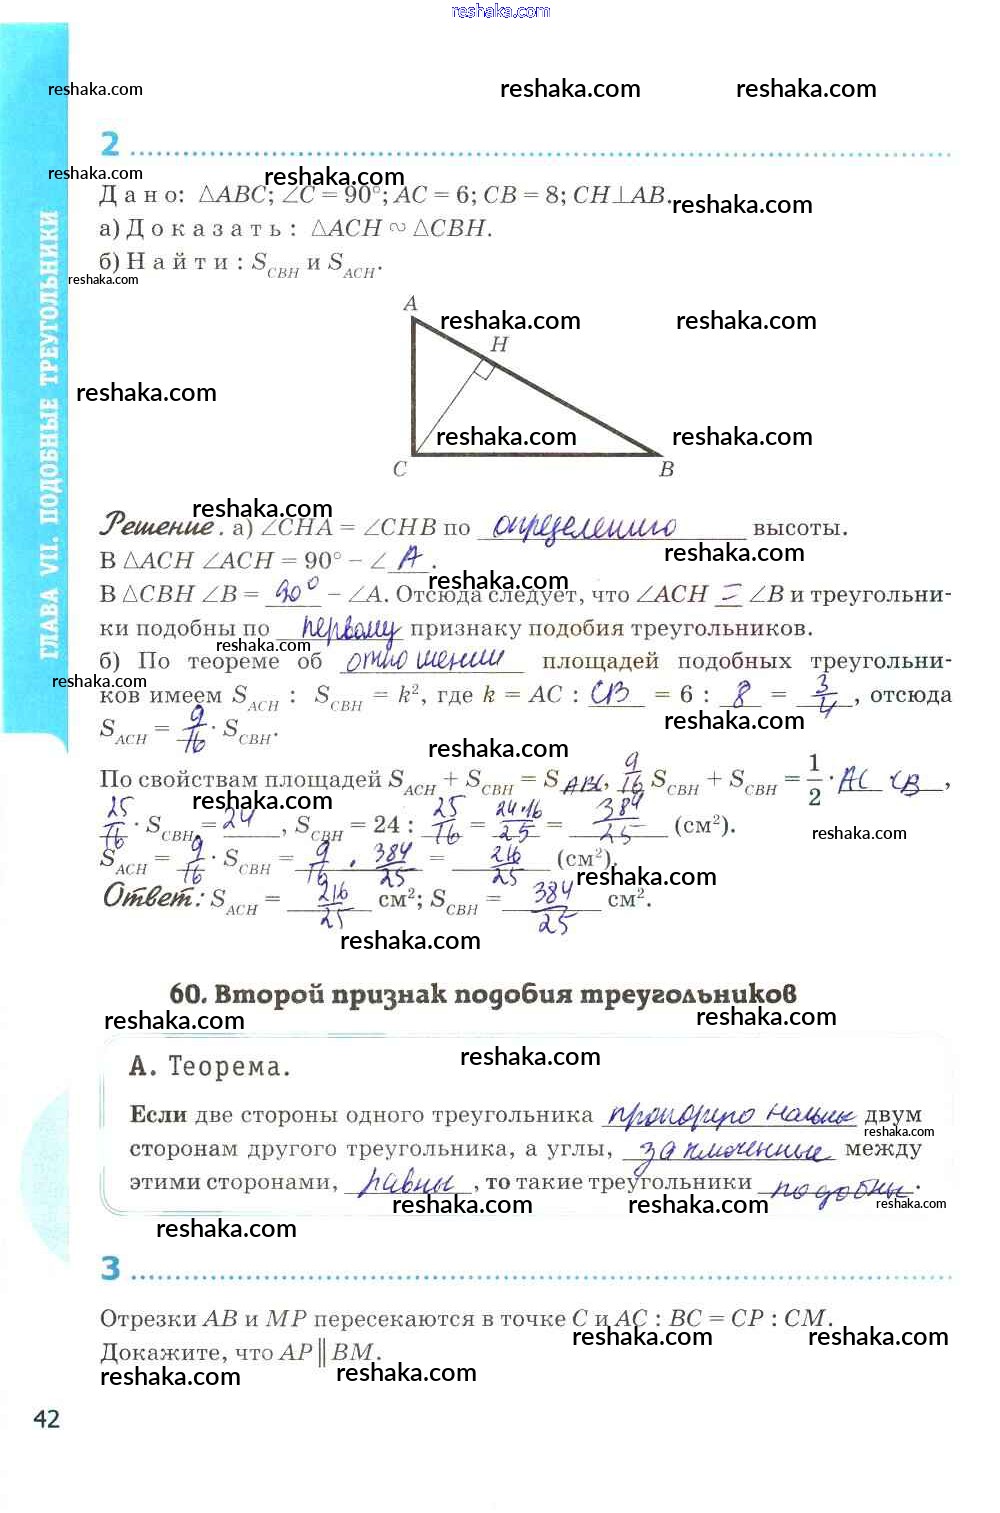 reshaka.com
reshaka.com reshaka.com reshaka.com
2
reshaka.com reshaka.com
Дано: △ABC; ∠C = 90°; AC = 6; CB = 8; CH⊥AB.
reshaka.com
а) Доказать: △ACH ∾ △CBH.
б) Найти: S_CBH и S_ACH.
reshaka.com
A
reshaka.com reshaka.com
H
reshaka.com
reshaka.com reshaka.com
C B
reshaka.com
Решение. а) ∠CHA = ∠CHB по определению высоты.
reshaka.com
В △ACH ∠ACH = 90° – ∠ A.
reshaka.com
В △CBH ∠B = 90° – ∠A. Отсюда следует, что ∠ACH = ∠B и треугольни-
ки подобны по первому признаку подобия треугольников.
reshaka.com
б) По теореме об отношении площадей подобных треугольни-
reshaka.com
ков имеем S_ACH : S_CBH = k², где k = AC : CB = 6 : 8 = 3/4, отсюда
reshaka.com
S_ACH = 9/16 · S_CBH.
reshaka.com
По свойствам площадей S_ACH + S_CBH = S_ABC, 9/16 S_CBH + S_CBH = 1/2 · AC · CB,
reshaka.com
25/16 · S_CBH = 24, S_CBH = 24 : 25/16 = 24·16/25 = 384/25 (см²).
reshaka.com
S_ACH = 9/16 · S_CBH = 9/16 · 384/25 = 216/25 (см²).
reshaka.com
Ответ: S_ACH = 216/25 см²; S_CBH = 384/25 см².
reshaka.com
60. Второй признак подобия треугольников
reshaka.com reshaka.com
А. Теорема.
reshaka.com
Если две стороны одного треугольника пропорциональны двум
reshaka.com
сторонам другого треугольника, а углы, заключенные между
этими сторонами, равны, то такие треугольники подобны.
reshaka.com reshaka.com reshaka.com
reshaka.com
3
Отрезки AB и MP пересекаются в точке C и AC : BC = CP : CM.
reshaka.com reshaka.com
Докажите, что AP ∥ BM.
reshaka.com reshaka.com
42
ГЛАВА VII. ПОДОБНЫЕ ТРЕУГОЛЬНИКИ